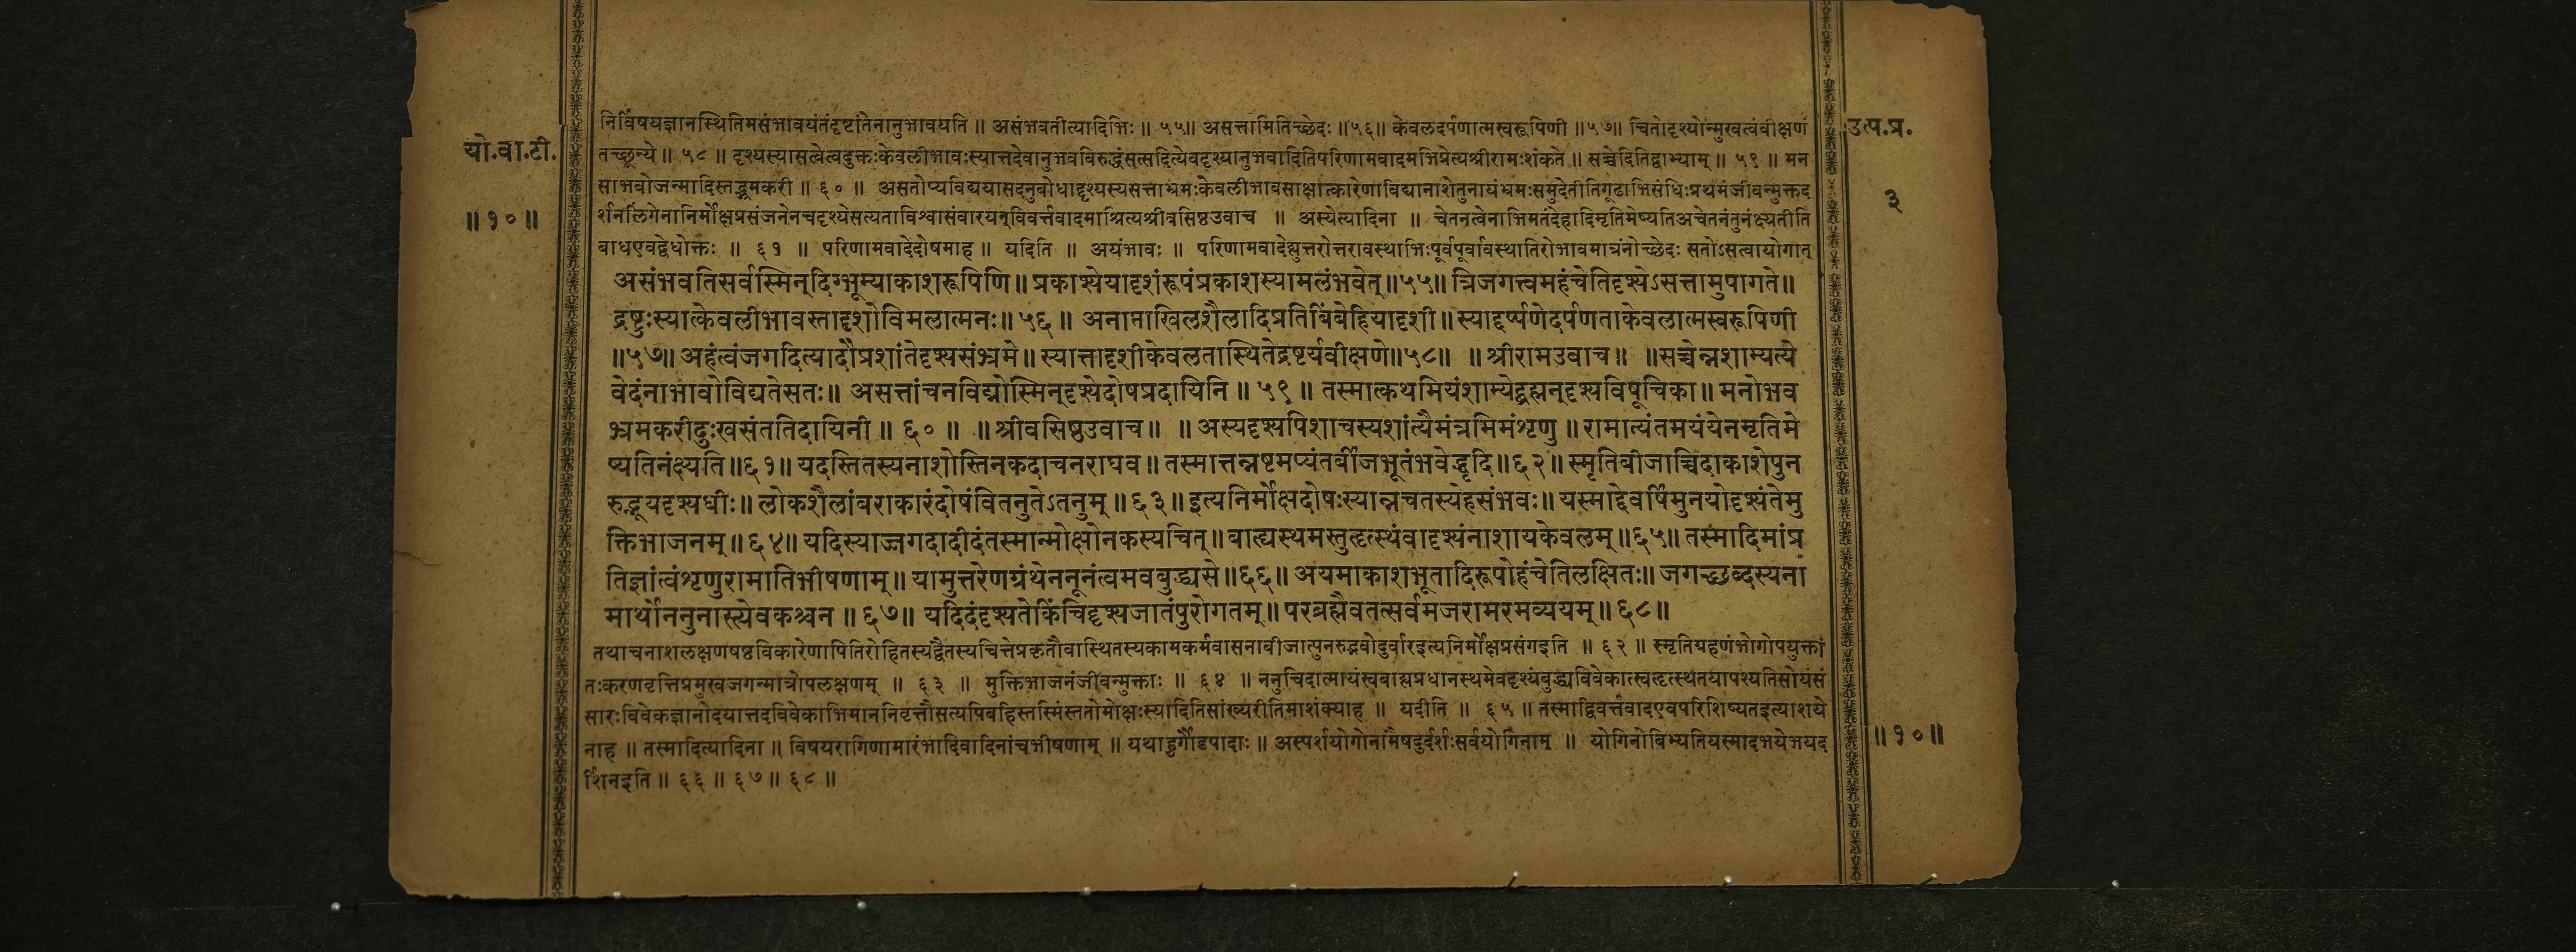 यो.वा.टी.
॥१०॥
उत्प.प्र.
३
निर्विषयज्ञानस्थितिमसंभावयंतंदृष्टांतेनानुभावयति ॥ असंभवतीत्यादिभिः ॥ ५५॥ असत्तामितिच्छेदः ॥५६॥ केवलदर्पणात्मस्वरूपिणी ॥५७॥ चितोदृश्योन्मुखत्वंवीक्षणं
तच्छून्ये ॥ ५८ ॥ दृश्यस्यासत्वेत्वदुक्तःकेवलीभावःस्यात्तदेवानुभवविरुद्धंसत्सदित्येवदृश्यानुभवादितिपरिणामवादमभिप्रेत्यश्रीरामःशंकते ॥ सच्चेदितिद्वाभ्याम् ॥ ५९ ॥ मन
साभवोजन्मादिस्तद्भ्रमकरी ॥ ६० ॥ असतोप्यविद्ययासदनुबोधाद्दृश्यस्यसत्ताभ्रमःकेवलीभावसाक्षात्कारेणाविद्यानाशेतुनायंभ्रमःसमुदेतीतिगूढाभिसंधिःप्रथमंजीवन्मुक्तद
र्शनलिंगेनानिर्मोक्षप्रसंजनेनचदृश्येसत्यताविश्वासंवारयन्विवर्त्तवादमाश्रित्यश्रीवसिष्ठउवाच ॥ अस्येत्यादिना ॥ चेतनत्वेनाभिमतंदेहादिमृतिमेष्यतिअचेतनंतुनंक्ष्यतीति
बाधएवद्वेधोक्तः ॥ ६१ ॥ परिणामवादेदोषमाह ॥ यदिति ॥ अयंभावः ॥ परिणामवादेह्युत्तरोत्तरावस्थाभिःपूर्वपूर्वावस्थातिरोभावमात्रंनोच्छेदः सतोऽसत्वायोगात्
असंभवतिसर्वस्मिन्दिग्भूम्याकाशरूपिणि॥ प्रकाश्येयादृशंरूपंप्रकाशस्यामलंभवेत्॥५५॥ त्रिजगत्त्वमहंचेतिदृश्येऽसत्तामुपागते॥
द्रष्टुःस्यात्केवलीभावस्तादृशोविमलात्मनः॥ ५६ ॥ अनाप्ताखिलशैलादिप्रतिबिंबेहियादृशी॥ स्याद्दर्प्पणेदर्पणताकेवलात्मस्वरूपिणी
॥५७॥ अहंत्वंजगदित्यादौप्रशांतेदृश्यसंभ्रमे॥ स्यात्तादृशीकेवलतास्थितेद्रष्टर्यवीक्षणे॥५८॥ ॥ श्रीरामउवाच॥ ॥सच्चेन्नशाम्यत्ये
वेदंनाभावोविद्यतेसतः॥ असत्तांचनविद्मोस्मिन्दृश्येदोषप्रदायिनि ॥ ५९ ॥ तस्मात्कथमियंशाम्येद्ब्रह्मन्दृश्यविषूचिका॥ मनोभव
भ्रमकरीदुःखसंततिदायिनी ॥ ६० ॥ ॥ श्रीवसिष्ठउवाच॥ ॥ अस्यदृश्यपिशाचस्यशांत्यैमंत्रमिमंशृणु ॥ रामात्यंतमयंयेनमृतिमे
ष्यतिनंक्ष्यति॥६१॥ यदस्तितस्यनाशोस्तिनकदाचनराघव॥ तस्मात्तन्नष्टमप्यंतर्बीजभूतंभवेद्धृदि॥६२॥ स्मृतिबीजाच्चिदाकाशेपुन
रुद्भूयदृश्यधीः॥ लोकशैलांबराकारंदोषंवितनुतेऽतनुम् ॥ ६३ ॥ इत्यनिर्मोक्षदोषःस्यान्नचतस्येहसंभवः॥ यस्माद्देवर्षिमुनयोदृश्यंतेमु
क्तिभाजनम्॥ ६४॥ यदिस्याज्जगदादीदंतस्मान्मोक्षोनकस्यचित्॥ बाह्यस्थमस्तुहृत्स्थंवादृश्यंनाशायकेवलम्॥६५॥ तस्मादिमांप्र
तिज्ञांत्वंशृणुरामातिभीषणाम्॥ यामुत्तरेणग्रंथेननूनंत्वमवबुद्ध्यसे॥६६॥ अयमाकाशभूतादिरूपोहंचेतिलक्षितः॥ जगच्छब्दस्यना
मार्थोननुनास्त्येवकश्चन ॥ ६७॥ यदिदंदृश्यतेकिंचिद्दृश्यजातंपुरोगतम्॥ परब्रह्मैवतत्सर्वमजरामरमव्ययम्॥ ६८॥
तथाचनाशलक्षणषष्ठविकारेणापितिरोहितस्यद्वैतस्यचित्तेप्रकृतौवास्थितस्यकामकर्मवासनाबीजात्पुनरुद्भवोदुर्वारइत्यनिर्मोक्षप्रसंगइति ॥ ६२ ॥ स्मृतिग्रहणंभोगोपयुक्तां
तःकरणवृत्तिप्रमुखजगन्मात्रोपलक्षणम् ॥ ६३ ॥ मुक्तिभाजनंजीवन्मुक्ताः ॥ ६४ ॥ ननुचिदात्मायंस्वबाह्यप्रधानस्थमेवदृश्यंबुद्ध्यविवेकात्स्वहृत्स्थतयापश्यतिसोयंसं
सारःविवेकज्ञानोदयात्तदविवेकाभिमाननिवृत्तौसत्यपिबहिस्तस्मिंस्ततोमोक्षःस्यादितिसांख्यरीतिमाशंक्याह ॥ यदीति ॥ ६५ ॥ तस्माद्विवर्त्तवादएवपरिशिष्यतइत्याशये
नाह ॥ तस्मादित्यादिना ॥ विषयरागिणामारंभादिवादिनांचभीषणाम् ॥ यथाहुर्गौडपादाः ॥ अस्पर्शयोगोनामैषदुर्दर्शःसर्वयोगिनाम् ॥ योगिनोबिभ्यतियस्मादभयेभयद
र्शिनइति ॥ ६६ ॥ ६७ ॥ ६८ ॥
॥१०॥